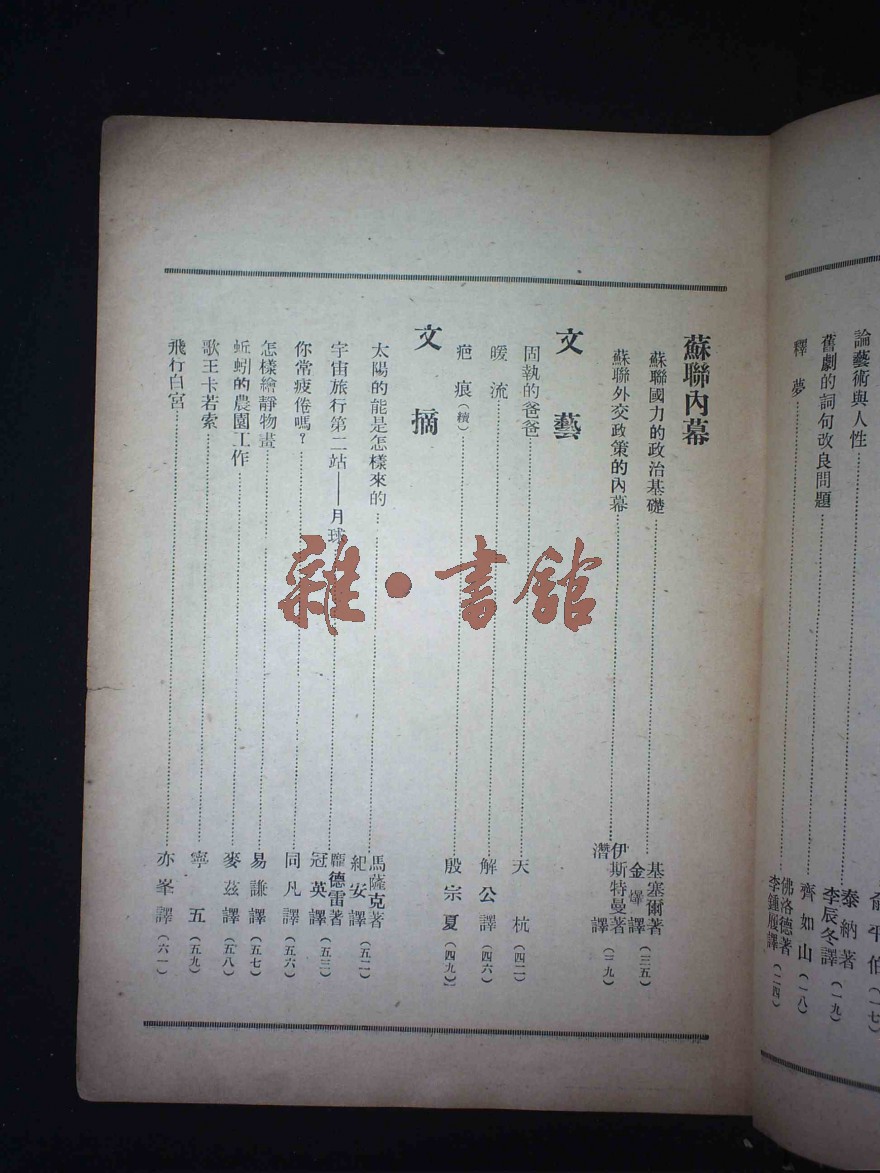 俞平伯(一七)
論藝術與人性
泰納著
李辰冬譯(一九)
舊劇的詞句改良問題
齊如山(一八)
釋夢
佛洛德著
李鍾履譯(二四)
蘇聯內幕
蘇聯國力的政治基礎
基塞爾著
金燡譯(三五)
蘇聯外交政策的內幕
伊斯特曼著
潛譯(三九)
文藝
固執的爸爸
天杭(四二)
暖流
解公譯(四六)
疤痕(續)
殷宗夏(四九)
文摘
太陽的能是怎樣來的
馬薩克著
紀安譯(五二)
宇宙旅行第二站——月球
龐德雷著
冠英譯(五三)
你常疲倦嗎?
同凡譯(五六)
怎樣繪靜物畫
易謙譯(五七)
蚯蚓的農園工作
麥茲譯(五八)
歌王卡若索
寧五(五九)
飛行白宮
亦峯譯(六一)
雜·書館